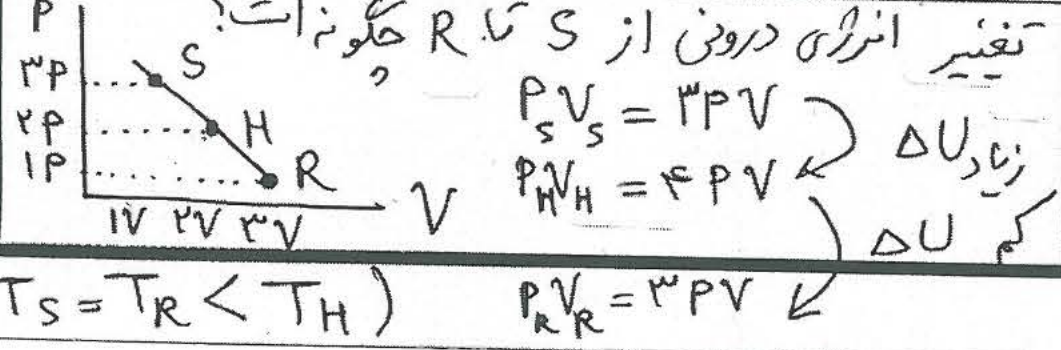 تغییر انرژی درونی از S تا R چگونه است؟
P
۳P
۲P
۱P
S
H
R
۱V ۲V ۳V
V
P_S V_S = ۳PV
P_H V_H = ۴PV
ΔU زیاد
ΔU کم
T_S = T_R < T_H )
P_R V_R = ۳PV